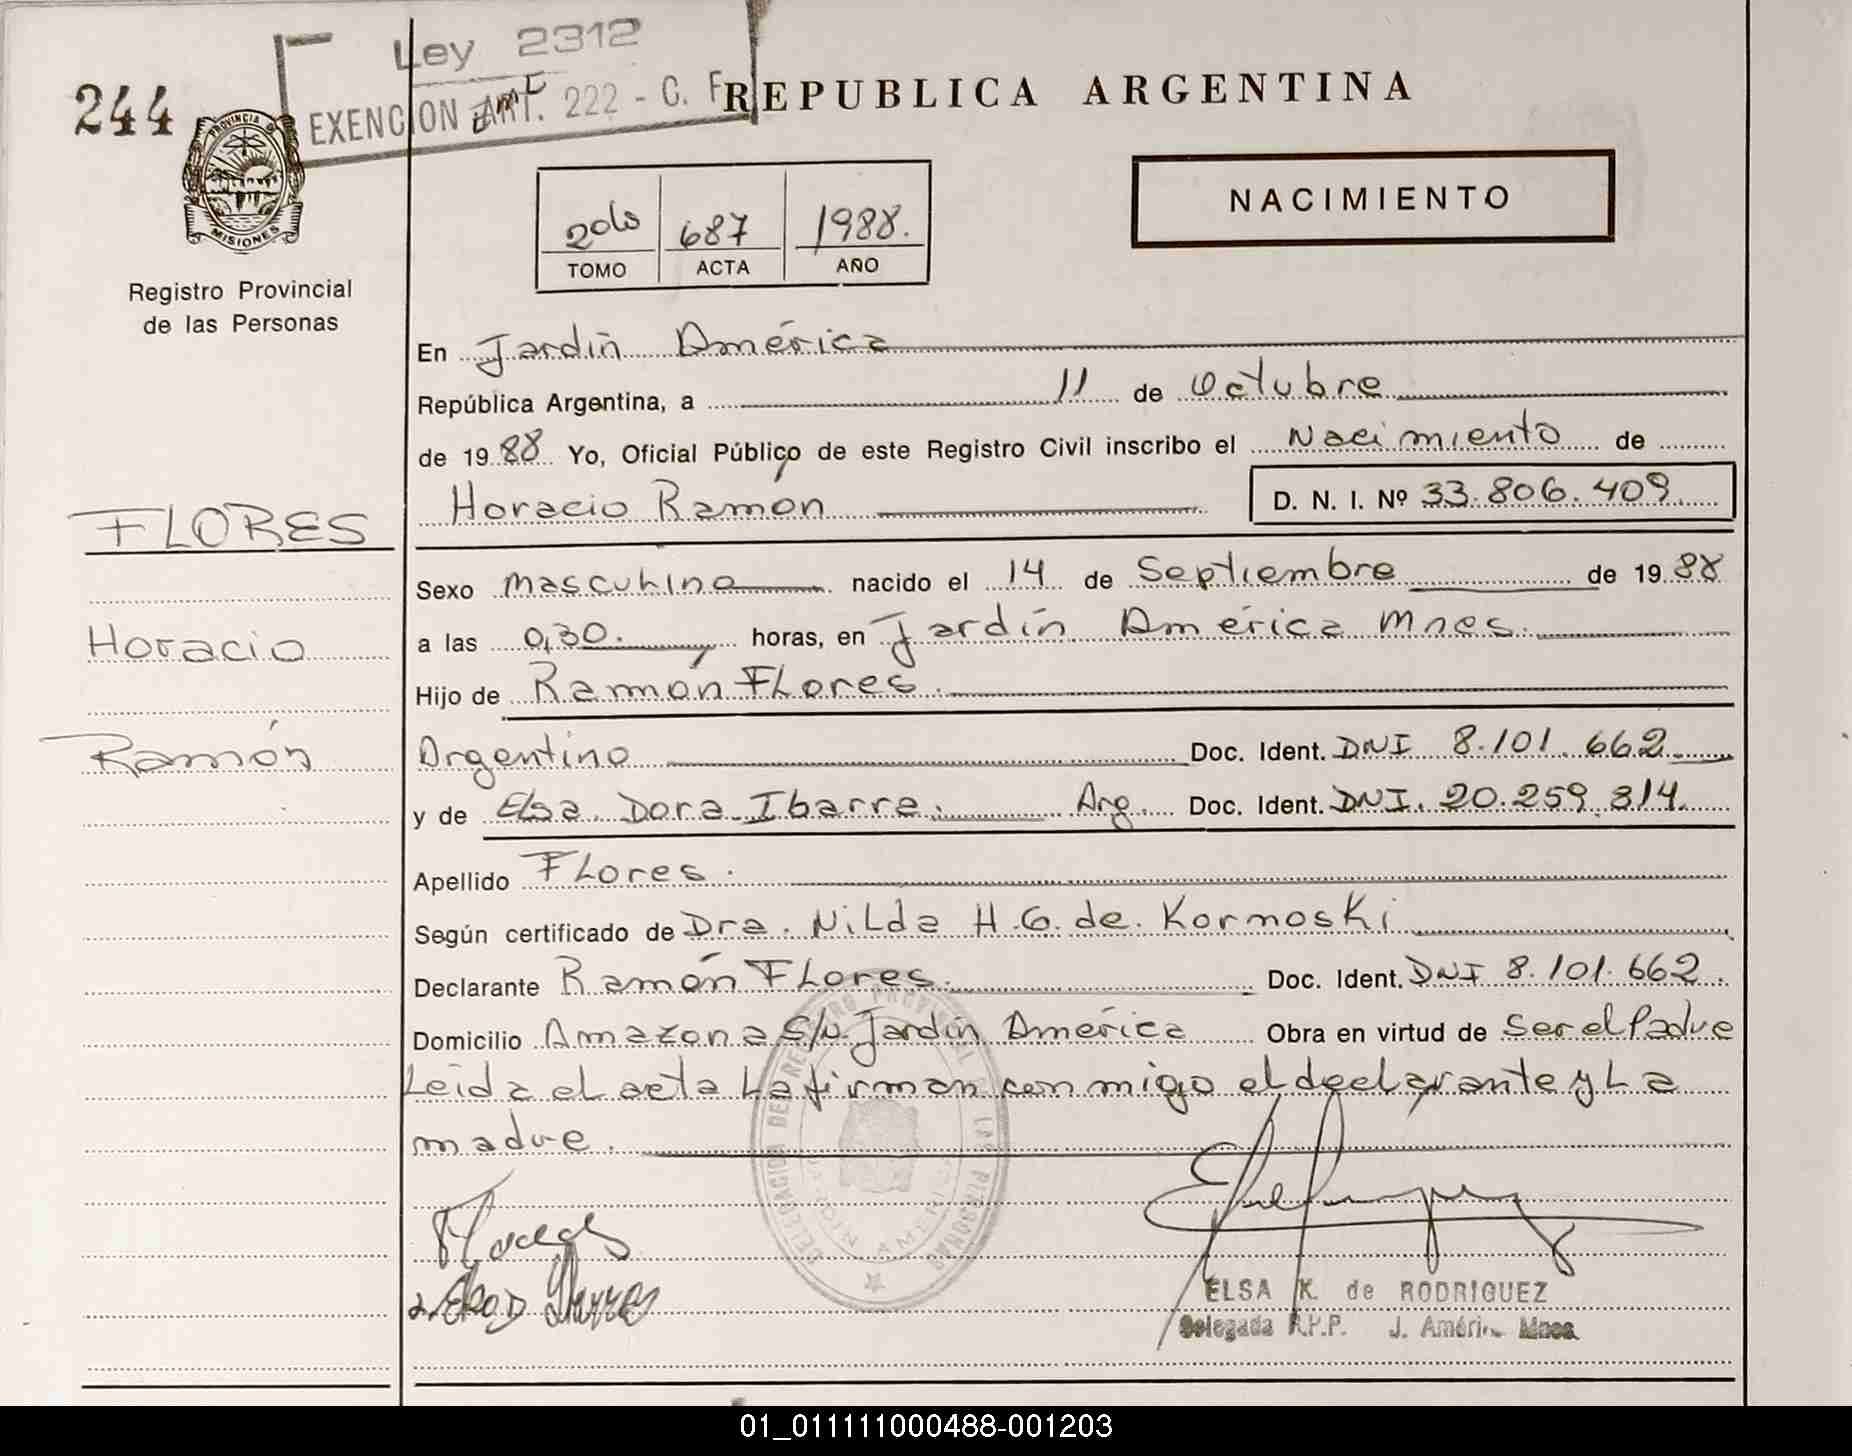 Ley 2312
EXENCION ART. 222 - C. F.
244
REPUBLICA ARGENTINA
PROVINCIA DE
MISIONES
Registro Provincial
de las Personas
2do 687 1988.
TOMO ACTA AÑO
NACIMIENTO
En Jardín América
República Argentina, a 11 de Octubre
de 1988 Yo, Oficial Público de este Registro Civil inscribo el Nacimiento de
Horacio Ramón D. N. I. Nº 33.806.409.
FLORES
Horacio
Ramón
Sexo masculino nacido el 14 de Septiembre de 1988
a las 0,30. horas, en Jardín América Mnes.
Hijo de Ramón Flores.
Argentino Doc. Ident. DNI 8.101.662
y de Elsa Dora Ibarra. Arg. Doc. Ident. DNI. 20.259.314.
Apellido Flores.
Según certificado de Dra. Nilda H.G. de Kornoski
Declarante Ramón Flores. Doc. Ident. DNI 8.101.662.
Domicilio Amazona S/N. Jardín América Obra en virtud de Ser el Padre
Leida el acta La firman conmigo el declarante y La
madre.
DELEGACION DEL REGISTRO PROVINCIAL DE LAS PERSONAS
JARDIN AMERICA
Flores
Elsa D Ibarra
ELSA K. de RODRIGUEZ
Delegada R.P.P. J. Améri. Mnes
01_011111000488-001203